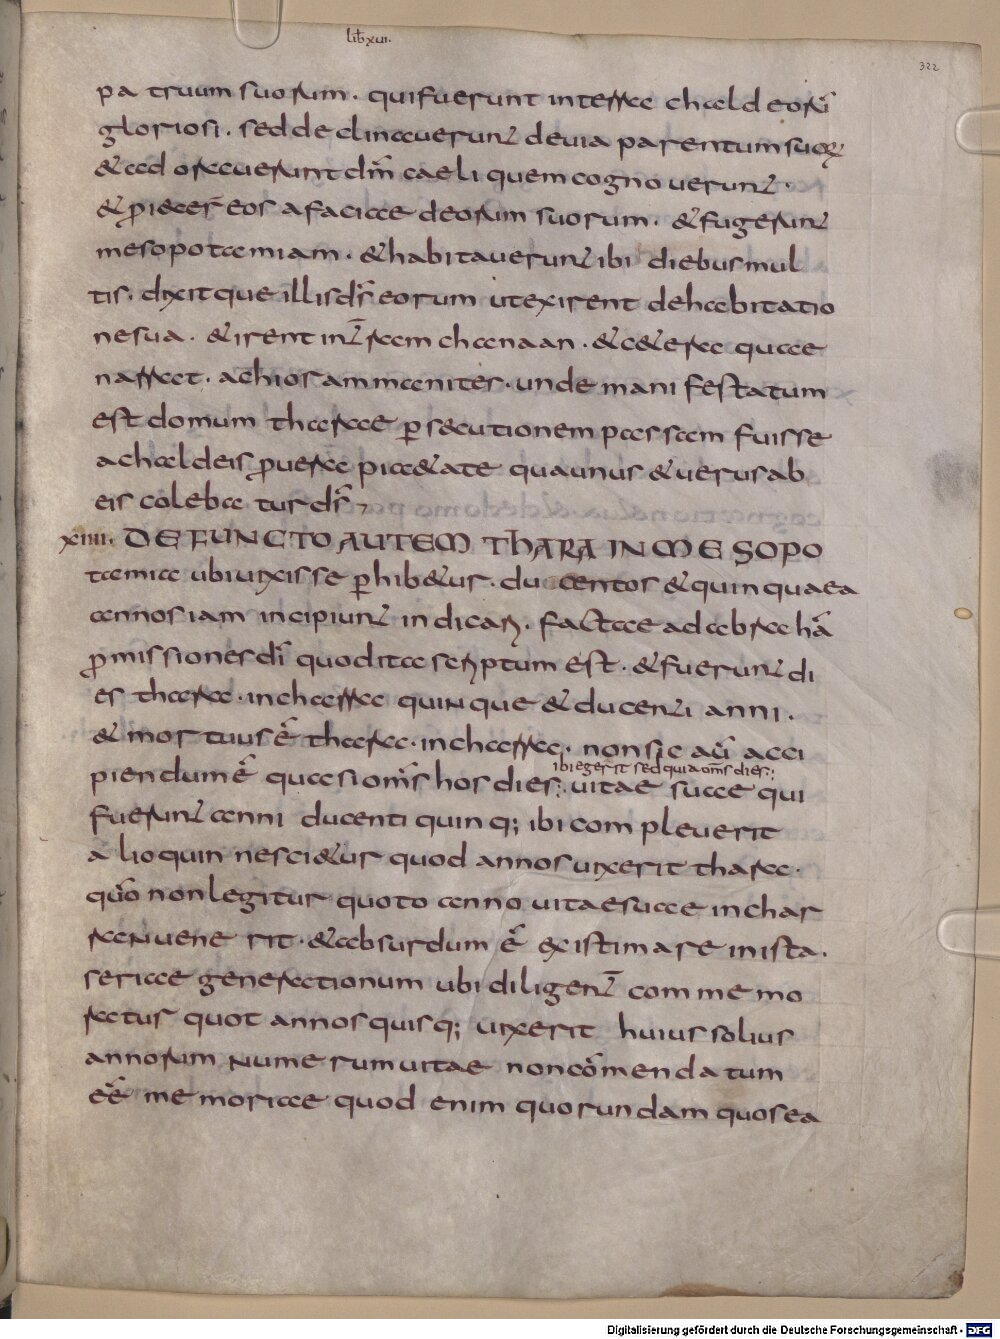 lib xui.
322
patruum suorum. qui fuerunt in terra chaldeorū
gloriosi. sed declinauerunt deuia parentum suorum
& adorauerunt dm̄ caeli quem cognouerunt.
& proiecer̄ eos a faciae deorum suorum. & fugerunt
mesopotamiam. & habitauerunt ibi diebus mul
tis. dixitque illis ds̄ eorum ut exirent de habitatio
ne sua. & irent in terram chanaan. & c&era quae
narrat. achior ammanites. unde manifestatum
est domum tharae persecutionem passam fuisse
a chaldeis pro uera pi&ate qua unus & uerus ab
eis colebatur ds̄
xiiii. DEFUNCTO AUTEM THARA IN MESOPO
tamia ubi uixisse perhib&ur. ducentos & quinquaea
annos iam incipiunt indicari. factae ad abrahā
promissiones dī quod ita scriptum est. & fuerunt di
es thara. in charra quinque & ducenti anni.
& mortuus ē thara. in charra. non sic aūt acci
piendum ē quasi om̄s hos dies:
ibi egerit sed quia om̄s dies:
uitae suae qui
fuerunt anni ducenti quinq; ibi compleuerit
alioquin nescitur quod annos uixerit thara.
quō non legitur quoto anno uitae suae in char
ra uenerit. & absurdum ē existimare in ista.
seriae generationum ubi diligent̄ commemo
ratur quot annos quisq; uixerit huius solius
annorum numerum uitae non cōmendatum
eē memoriae quod enim quorundam quos ea
Digitalisierung gefördert durch die Deutsche Forschungsgemeinschaft - DFG